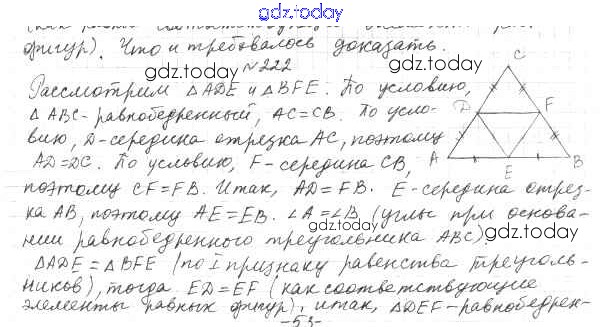 gdz.today
фигур). Что и требовалось доказать.
gdz.today
№222
gdz.today
Рассмотрим △ADE и △BFE. По условию,
△ABC-равнобедренный, AC=CB. По усло-
вию, D-середина отрезка AC, поэтому
AD=DC. По условию, F-середина CB,
поэтому CF=FB. Итак, AD=FB. E-середина отрез-
ка AB, поэтому AE=EB. ∠A=∠B (углы при основа-
нии равнобедренного треугольника ABC).
△ADE=△BFE (по I признаку равенства треуголь-
ников), тогда ED=EF (как соответствующие
элементы равных фигур), итак, △DEF-равнобедрен-
-53-
C
D
F
A
E
B
gdz.today
gdz.today
gdz.today
gdz.today
gdz.today
gdz.today
gdz.today